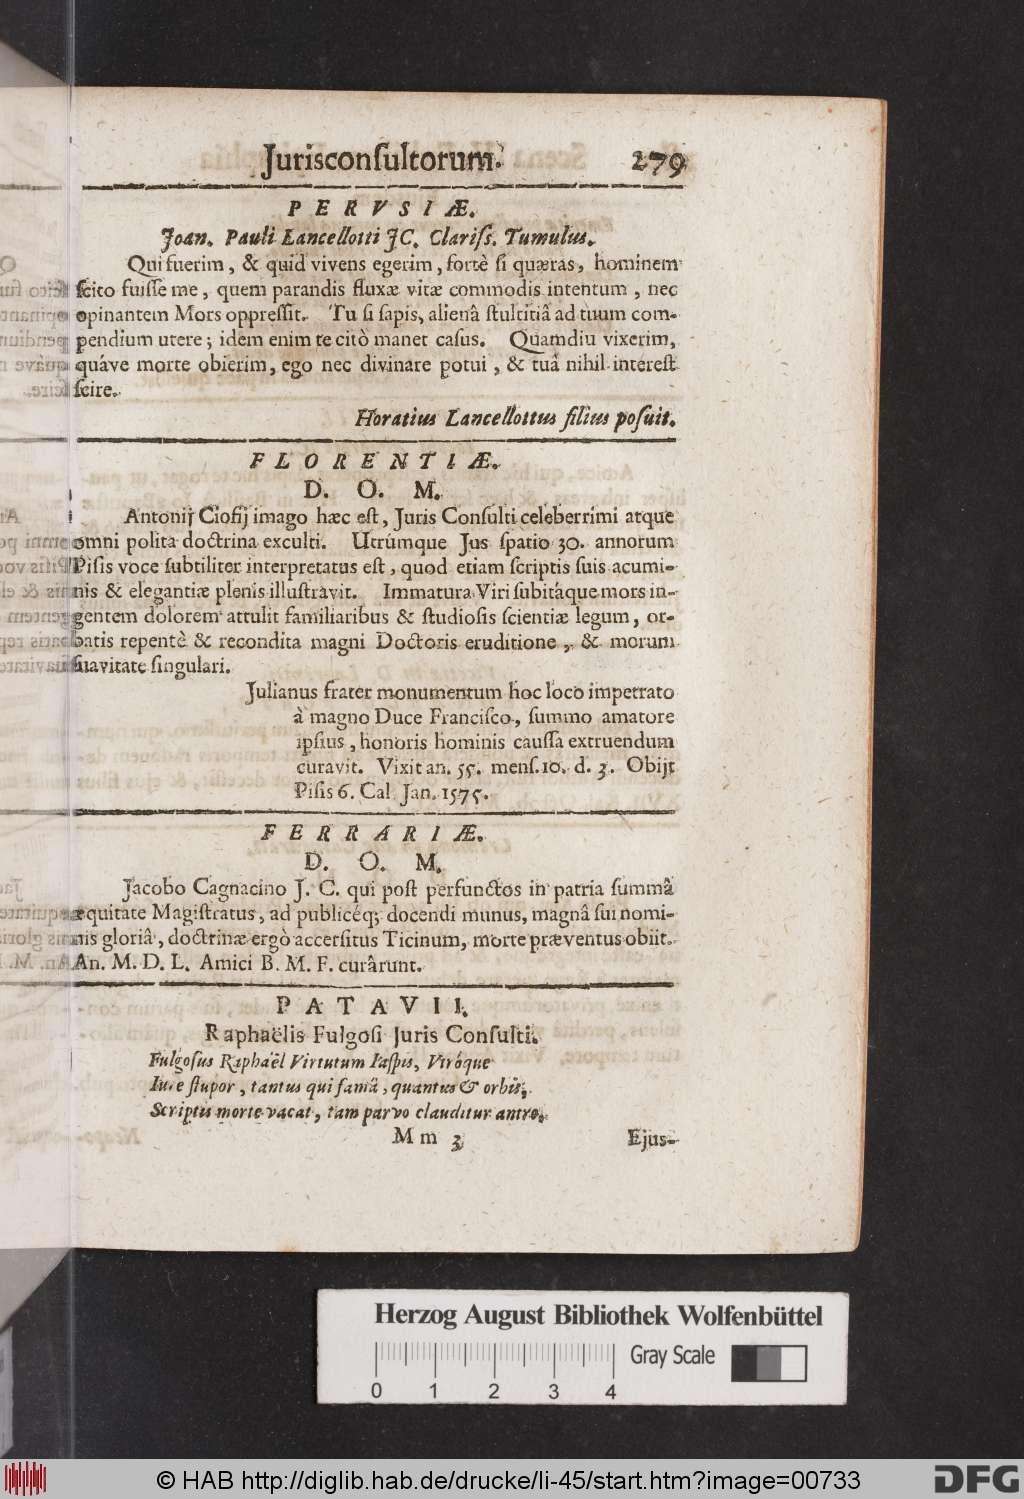 Jurisconſultorum. 279
PERVSIÆ.
Joan. Pauli Lancellotti JC. Clariſs. Tumulus.
Qui fuerim, & quid vivens egerim, fortè ſi quæras, hominem
ſcito fuiſſe me, quem parandis fluxæ vitæ commodis intentum, nec
opinantem Mors oppreſſit. Tu ſi ſapis, alienâ ſtultitiâ ad tuum com-
pendium utere; idem enim te citò manet caſus. Quamdiu vixerim,
quáve morte obierim, ego nec divinare potui, & tuâ nihil intereſt
ſcire.
Horatius Lancellottus filius poſuit.
FLORENTIÆ.
D. O. M.
Antonij Ciofij imago hæc eſt, Juris Conſulti celeberrimi atque
omni polita doctrina exculti. Utrúmque Jus ſpatio 30. annorum
Piſis voce ſubtiliter interpretatus eſt, quod etiam ſcriptis ſuis acumi-
nis & elegantiæ plenis illuſtravit. Immatura Viri ſubitáque mors in-
gentem dolorem attulit familiaribus & ſtudioſis ſcientiæ legum, or-
batis repentè & recondita magni Doctoris eruditione, & morum
ſuavitate ſingulari.
Julianus frater monumentum hoc loco impetrato
à magno Duce Franciſco, ſummo amatore
ipſius, honoris hominis cauſſa extruendum
curavit. Vixit an. 55. menſ. 10. d. 3. Obijt
Piſis 6. Cal. Jan. 1575.
FERRARIÆ.
D. O. M.
Jacobo Cagnacino J. C. qui poſt perfunctos in patria ſummâ
æquitate Magiſtratus, ad publicéq; docendi munus, magnâ ſui nomi-
nis gloriâ, doctrinæ ergò accerſitus Ticinum, morte præventus obiit.
An. M. D. L. Amici B. M. F. curârunt.
PATAVII.
Raphaëlis Fulgoſi Juris Conſulti.
Fulgoſus Raphaël Virtutum Iaſpis, Vtróque
Iure ſtupor, tantus qui famâ, quantus & orbis,
Scriptis morte vacat, tam parvo clauditur antro.
Mm 3 Ejus-
Herzog August Bibliothek Wolfenbüttel
Gray Scale
0 1 2 3 4
© HAB http://diglib.hab.de/drucke/li-45/start.htm?image=00733 DFG